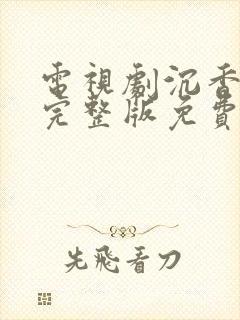 電視劇沉香
完整版免費
先飛看刀